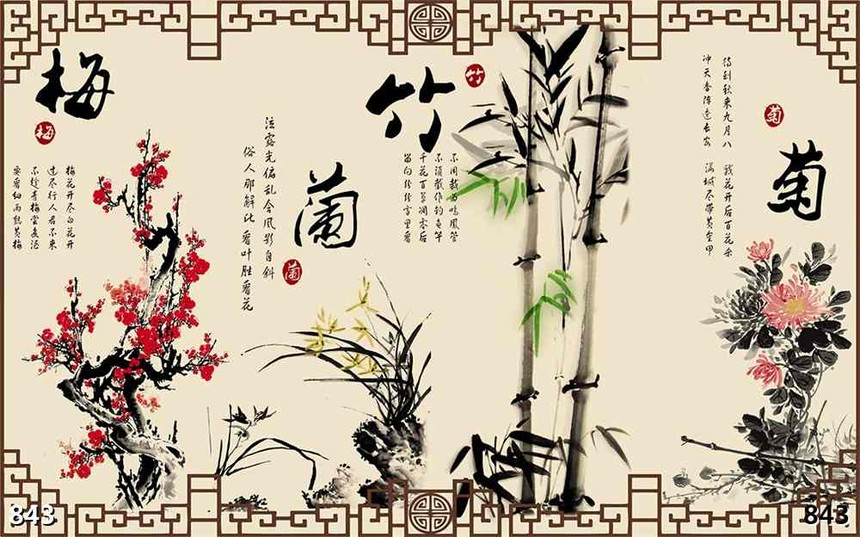 梅
梅
梅花开尽白花开
过尽行人君不来
不趁青梅尝煮酒
要看细雨熟黄梅
泣露光偏乱含风影自斜
俗人那解此看叶胜看花
蘭
蘭
竹
竹
不用裁为鸣凤管
不须截作钓鱼竿
千花百草凋零后
留向纷纷雪里看
菊
菊
待到秋来九月八 我花开后百花杀
冲天香阵透长安 满城尽带黄金甲
843
843